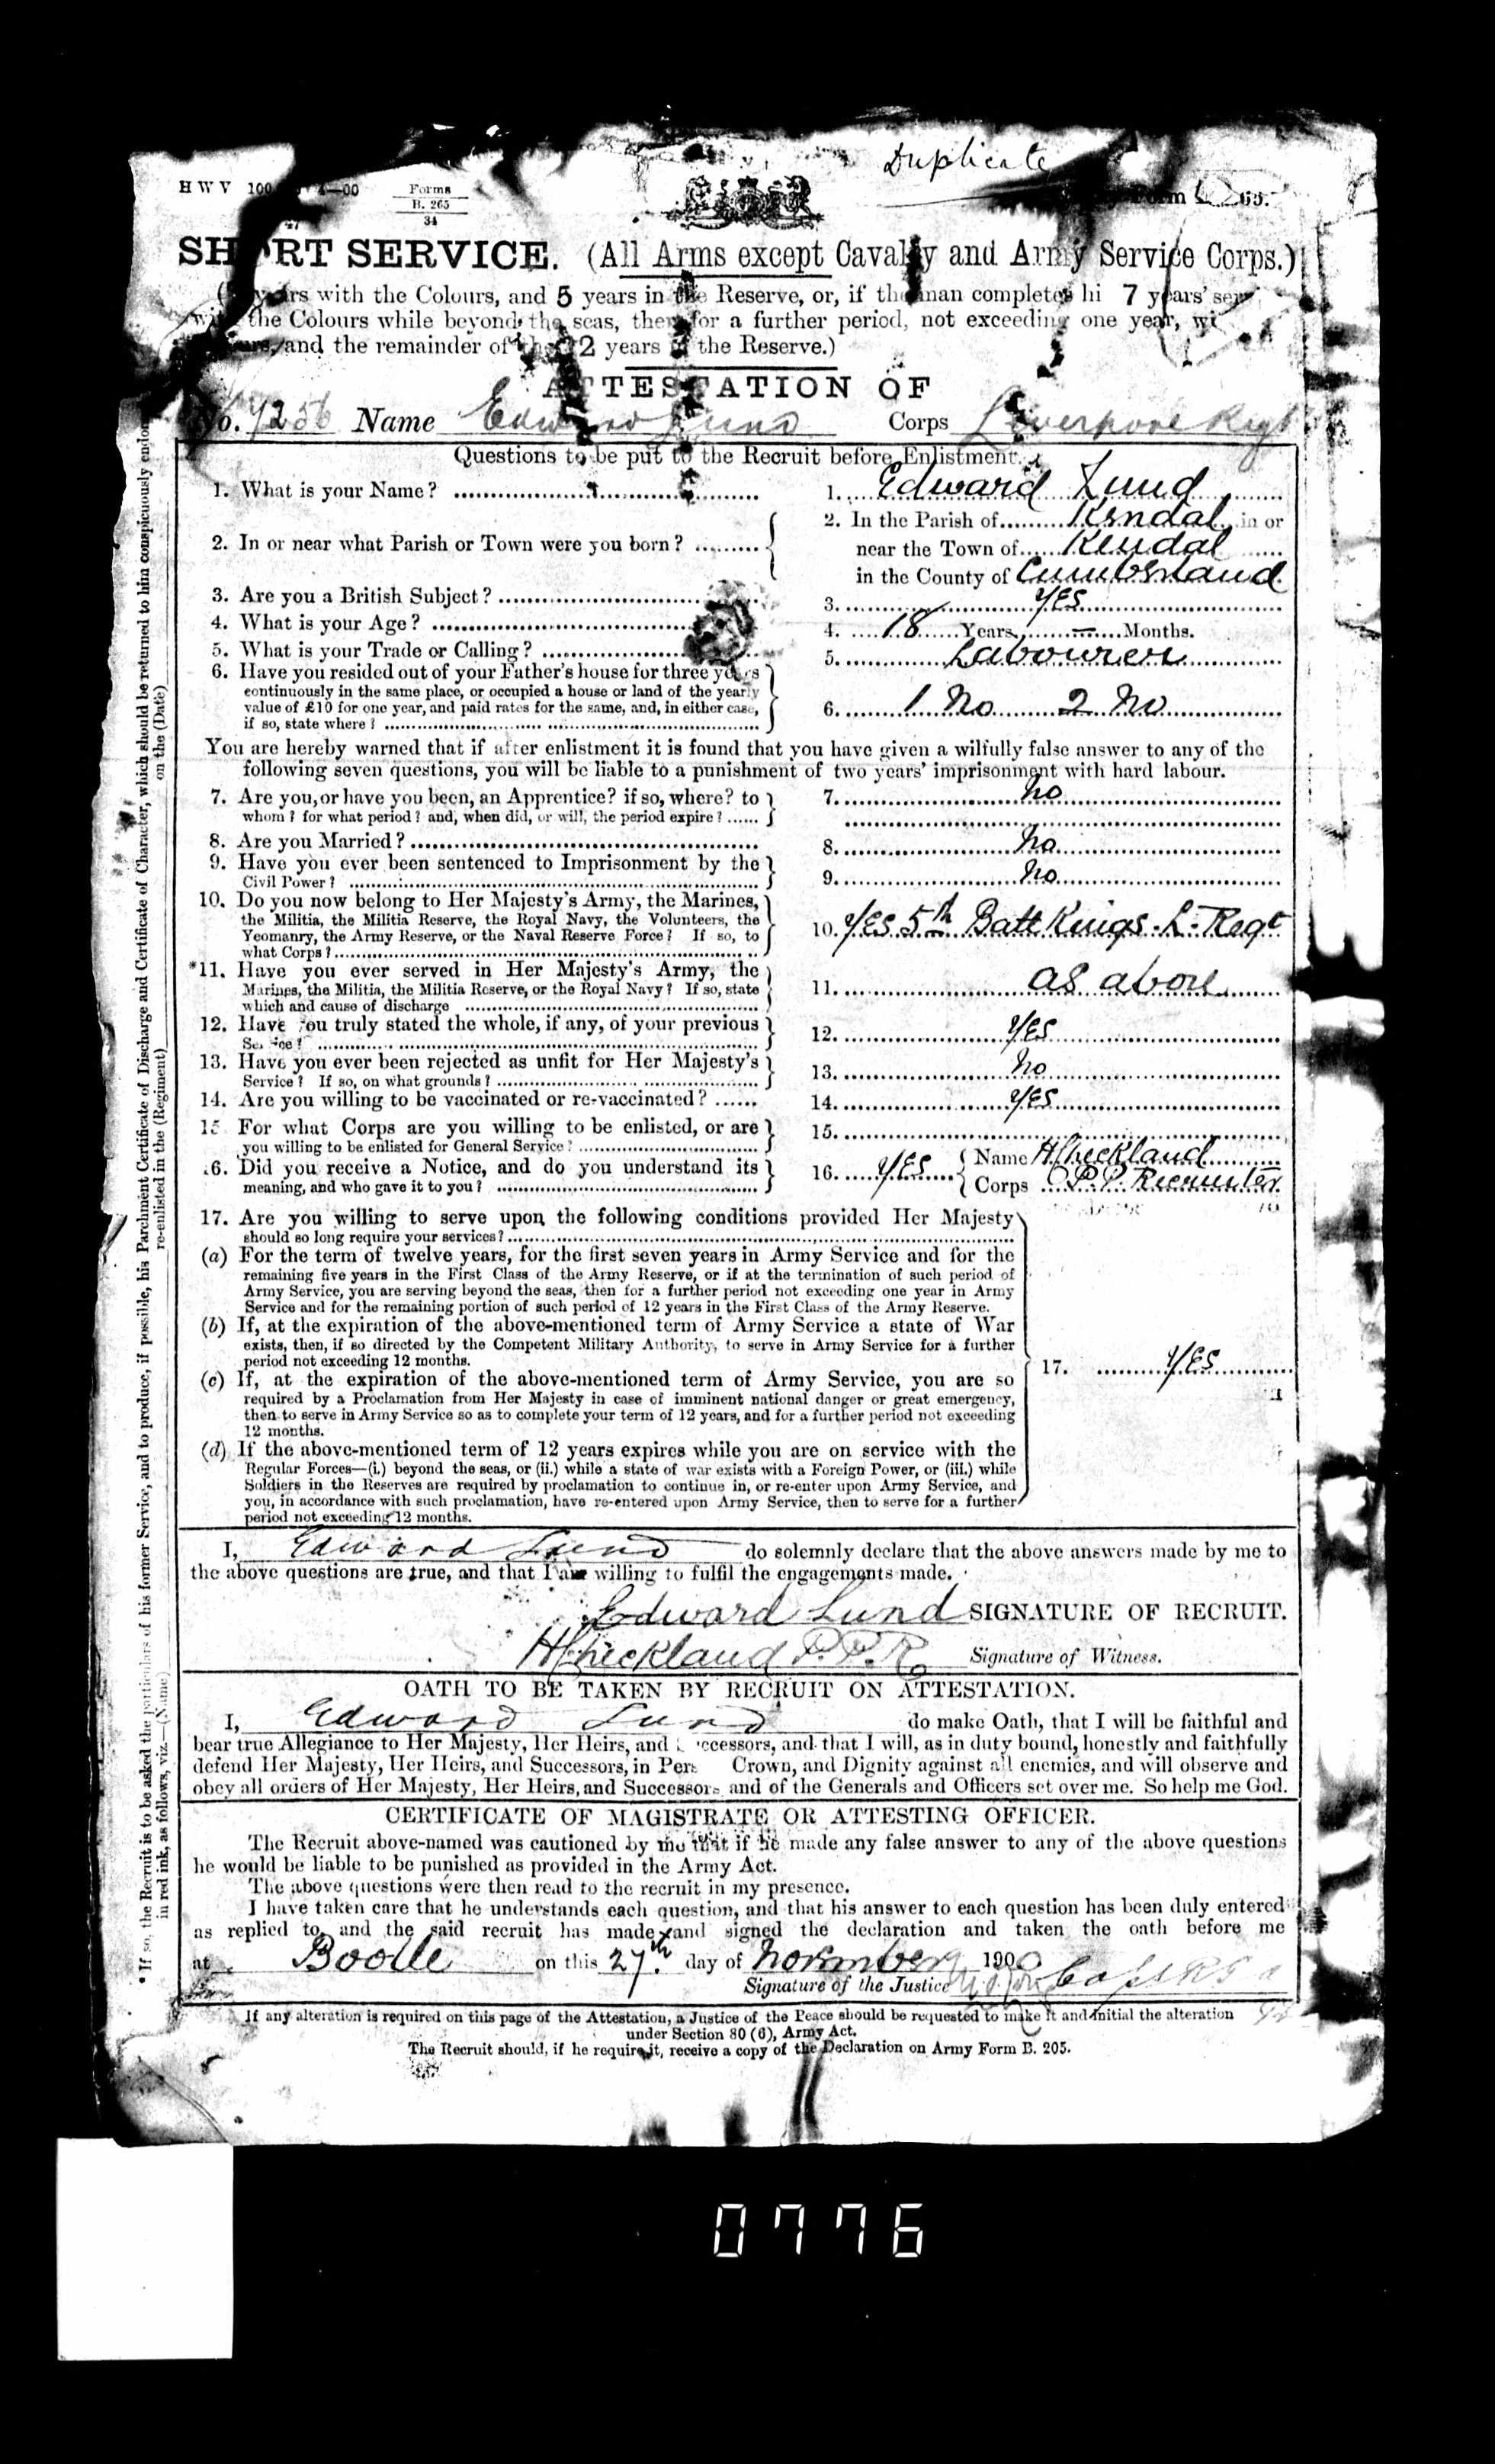 Duplicate
H W V 100 4—00 Forms
B. 265
34
Form 65.
SHORT SERVICE. (All Arms except Cavalry and Army Service Corps.)
years with the Colours, and 5 years in the Reserve, or, if the man completes hi 7 years'
the Colours while beyond the seas, then for a further period, not exceeding one year,
and the remainder of the 12 years in the Reserve.)
ATTESTATION OF
No. 7256 Name Edward Lund Corps Liverpool Regt
Questions to be put to the Recruit before Enlistment.
1. What is your Name? 1. Edward Lund
2. In or near what Parish or Town were you born? 2. In the Parish of Kendal in or
near the Town of Kendal
in the County of Cumberland
3. Are you a British Subject? 3. YES
4. What is your Age? 4. 18 Years — Months.
5. What is your Trade or Calling? 5. Labourer
6. Have you resided out of your Father's house for three years
continuously in the same place, or occupied a house or land of the yearly
value of £10 for one year, and paid rates for the same, and, in either case,
if so, state where? 6. 1 No 2 No
You are hereby warned that if after enlistment it is found that you have given a wilfully false answer to any of the
following seven questions, you will be liable to a punishment of two years' imprisonment with hard labour.
7. Are you, or have you been, an Apprentice? if so, where? to 7. No
whom? for what period? and, when did, or will, the period expire?
8. Are you Married? 8. No
9. Have you ever been sentenced to Imprisonment by the
Civil Power? 9. No
10. Do you now belong to Her Majesty's Army, the Marines,
the Militia, the Militia Reserve, the Royal Navy, the Volunteers, the
Yeomanry, the Army Reserve, or the Naval Reserve Force? If so, to
what Corps? 10. YES 5th Batt Kings. L. Regt
*11. Have you ever served in Her Majesty's Army, the
Marines, the Militia, the Militia Reserve, or the Royal Navy? If so, state
which and cause of discharge 11. as above
12. Have you truly stated the whole, if any, of your previous
Service? 12. YES
13. Have you ever been rejected as unfit for Her Majesty's
Service? If so, on what grounds? 13. No
14. Are you willing to be vaccinated or re-vaccinated? 14. YES
15. For what Corps are you willing to be enlisted, or are 15.
you willing to be enlisted for General Service?
16. Did you receive a Notice, and do you understand its
meaning, and who gave it to you? 16. YES Name H Checkland
Corps P.P. Recruiter
17. Are you willing to serve upon the following conditions provided Her Majesty
should so long require your services?
(a) For the term of twelve years, for the first seven years in Army Service and for the
remaining five years in the First Class of the Army Reserve, or if at the termination of such period of
Army Service, you are serving beyond the seas, then for a further period not exceeding one year in Army
Service and for the remaining portion of such period of 12 years in the First Class of the Army Reserve.
(b) If, at the expiration of the above-mentioned term of Army Service a state of War
exists, then, if so directed by the Competent Military Authority, to serve in Army Service for a further
period not exceeding 12 months.
17. YES
(c) If, at the expiration of the above-mentioned term of Army Service, you are so
required by a Proclamation from Her Majesty in case of imminent national danger or great emergency,
then to serve in Army Service so as to complete your term of 12 years, and for a further period not exceeding
12 months.
(d) If the above-mentioned term of 12 years expires while you are on service with the
Regular Forces—(i.) beyond the seas, or (ii.) while a state of war exists with a Foreign Power, or (iii.) while
Soldiers in the Reserves are required by proclamation to continue in, or re-enter upon Army Service, and
you, in accordance with such proclamation, have re-entered upon Army Service, then to serve for a further
period not exceeding 12 months.
I, Edward Lund do solemnly declare that the above answers made by me to
the above questions are true, and that I am willing to fulfil the engagements made.
Edward Lund SIGNATURE OF RECRUIT.
H Checkland P.P.R. Signature of Witness.
OATH TO BE TAKEN BY RECRUIT ON ATTESTATION.
I, Edward Lund do make Oath, that I will be faithful and
bear true Allegiance to Her Majesty, Her Heirs, and Successors, and that I will, as in duty bound, honestly and faithfully
defend Her Majesty, Her Heirs, and Successors, in Pers Crown, and Dignity against all enemies, and will observe and
obey all orders of Her Majesty, Her Heirs, and Successors and of the Generals and Officers set over me. So help me God.
CERTIFICATE OF MAGISTRATE OR ATTESTING OFFICER.
The Recruit above-named was cautioned by me that if he made any false answer to any of the above questions
he would be liable to be punished as provided in the Army Act.
The above questions were then read to the recruit in my presence.
I have taken care that he understands each question, and that his answer to each question has been duly entered
as replied to, and the said recruit has made and signed the declaration and taken the oath before me
at Bootle on this 27th day of November 1900
Signature of the Justice
If any alteration is required on this page of the Attestation, a Justice of the Peace should be requested to make it and initial the alteration
under Section 80 (6), Army Act.
The Recruit should, if he require it, receive a copy of the Declaration on Army Form B. 205.
* If so, the Recruit is to be asked the particulars of his former Service, and to produce, if possible, his Parchment Certificate of Discharge and Certificate of Character, which should be returned to him conspicuously endorsed
in red ink, as follows, viz.—(Name) re-enlisted in the (Regiment) on the (Date)
0776